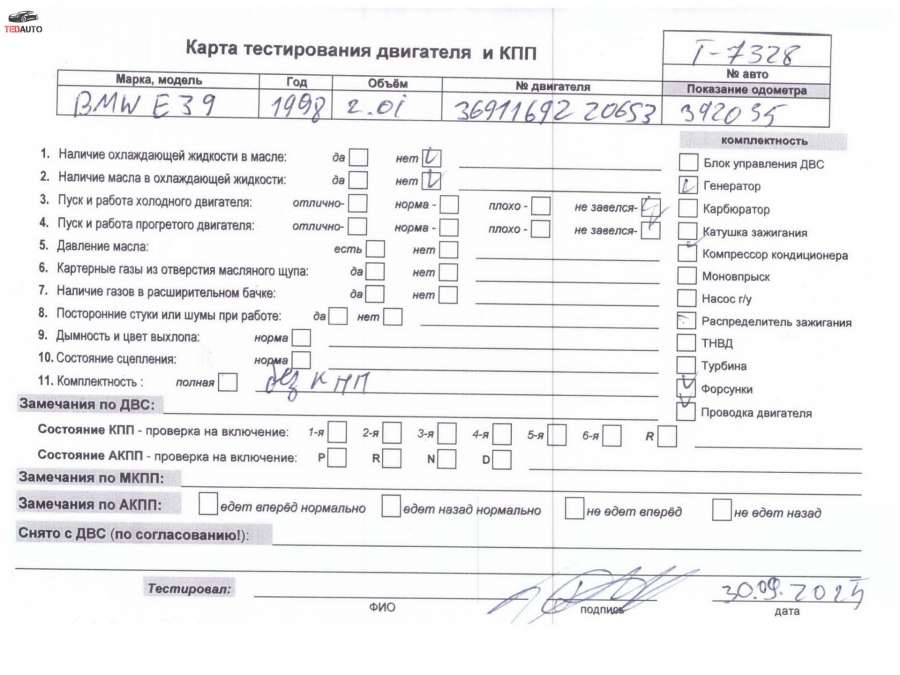 TEDAUTO
Карта тестирования двигателя и КПП
Т-7328
№ авто
Марка, модель Год Объём № двигателя Показание одометра
BMW E39 1998 2.0i 36911692 206S3 392035
комплектность
1. Наличие охлаждающей жидкости в масле: да нет
2. Наличие масла в охлаждающей жидкости: да нет
3. Пуск и работа холодного двигателя: отлично- норма - плохо - не завелся-
4. Пуск и работа прогретого двигателя: отлично- норма - плохо - не завелся-
5. Давление масла: есть нет
6. Картерные газы из отверстия масляного щупа: да нет
7. Наличие газов в расширительном бачке: да нет
8. Посторонние стуки или шумы при работе: да нет
9. Дымность и цвет выхлопа: норма
10. Состояние сцепления: норма
11. Комплектность : полная без КПП
Блок управления ДВС
Генератор
Карбюратор
Катушка зажигания
Компрессор кондиционера
Моновпрыск
Насос г/у
Распределитель зажигания
ТНВД
Турбина
Форсунки
Проводка двигателя
Замечания по ДВС:
Состояние КПП - проверка на включение: 1-я 2-я 3-я 4-я 5-я 6-я R
Состояние АКПП - проверка на включение: P R N D
Замечания по МКПП:
Замечания по АКПП: едет вперёд нормально едет назад нормально не едет вперёд не едет назад
Снято с ДВС (по согласованию!):
Тестировал: 30.09.2025
ФИО подпись дата